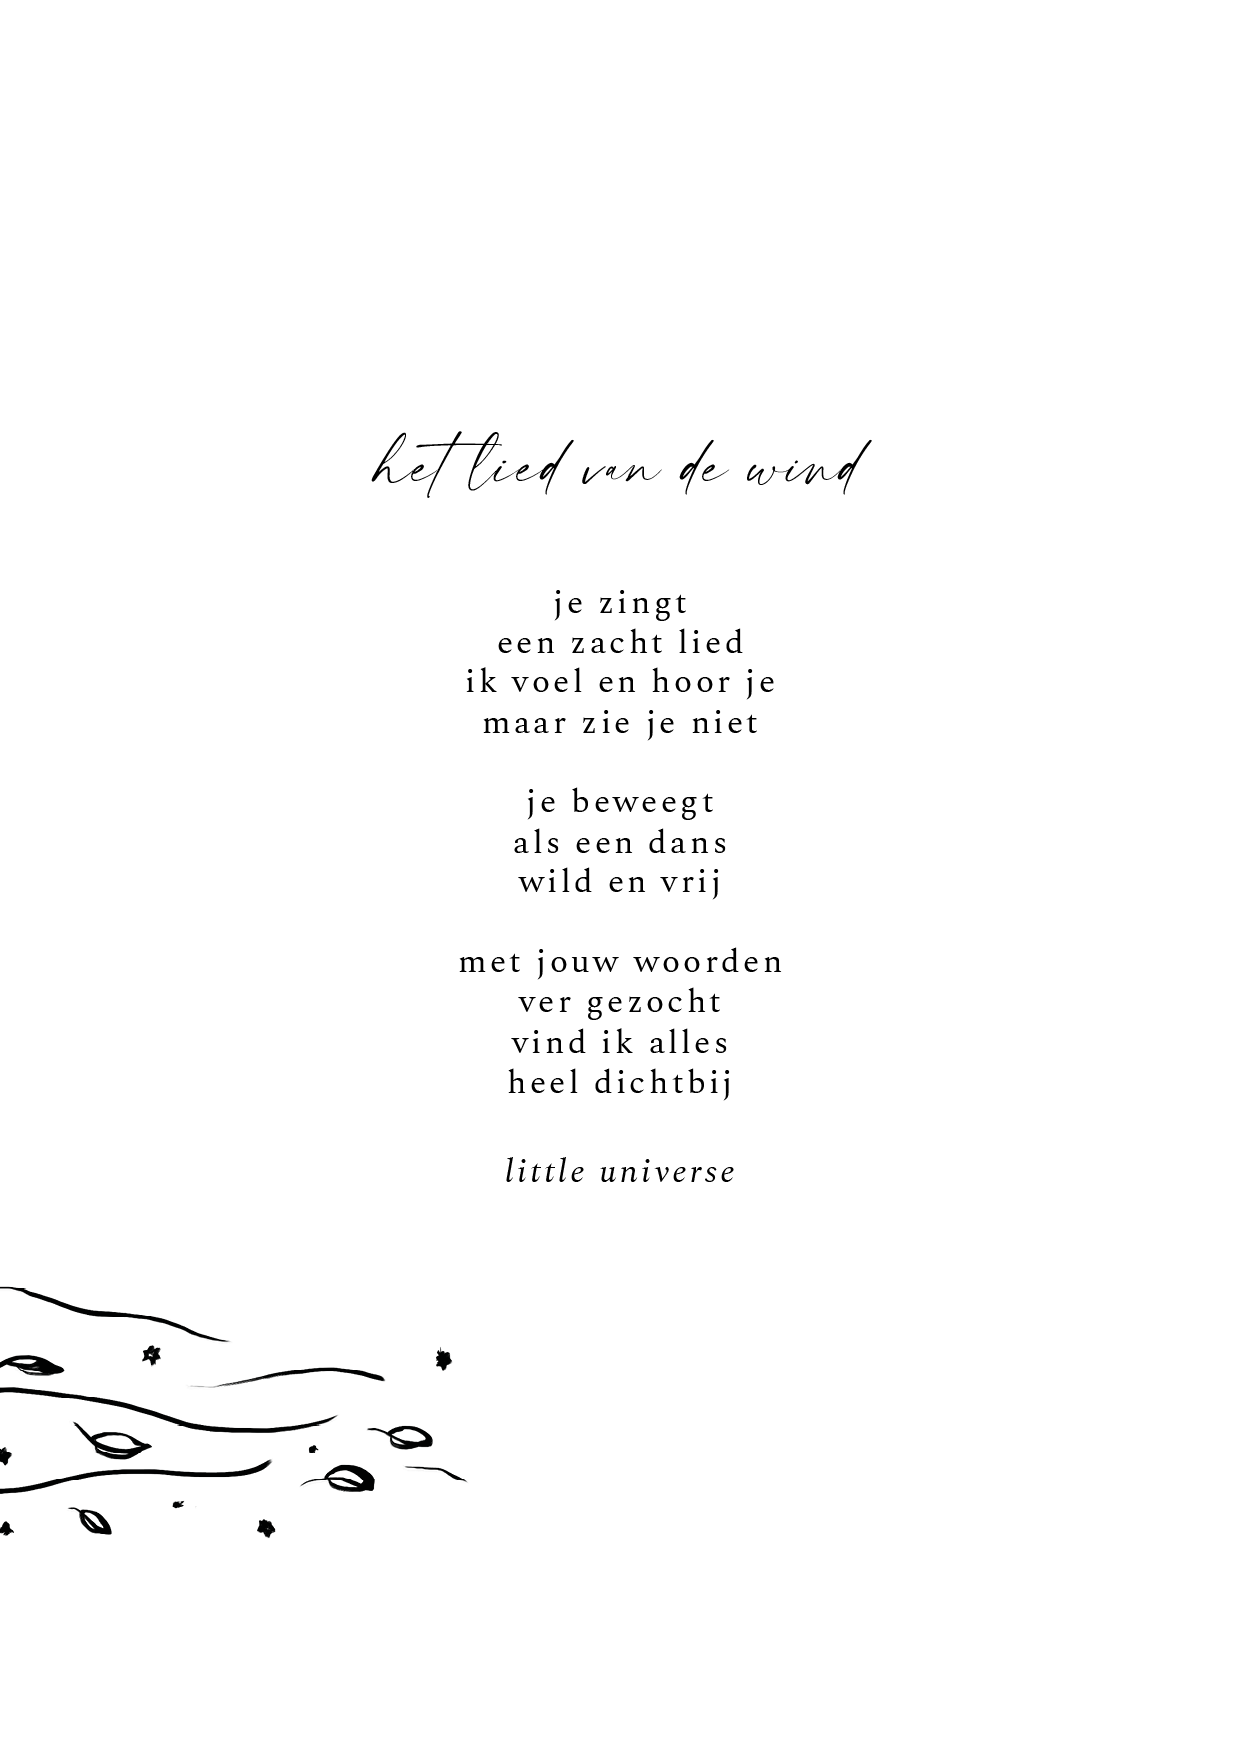 het lied van de wind
je zingt
een zacht lied
ik voel en hoor je
maar zie je niet
je beweegt
als een dans
wild en vrij
met jouw woorden
ver gezocht
vind ik alles
heel dichtbij
little universe